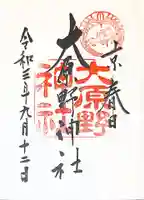 京春日
大原野神社
大原野
神社
令和三年九月十二日